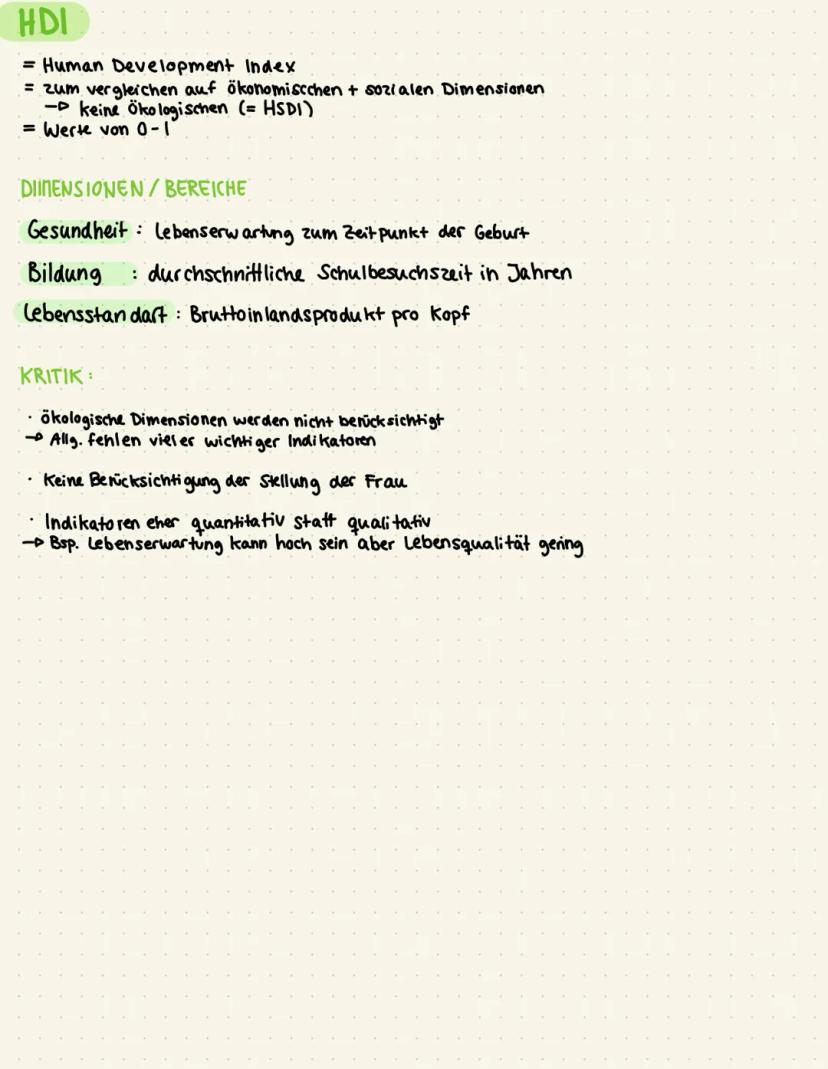 HDI
= Human Development Index
= zum vergleichen auf ökonomiscchen + sozialen Dimensionen
→ keine Ökologischen (= HSDI)
= Werte von 0-1
DIMENSIONEN / BEREICHE
Gesundheit : Lebenserwartung zum Zeitpunkt der Geburt
Bildung : durchschnittliche Schulbesuchszeit in Jahren
Lebensstandart : Bruttoinlandsprodukt pro Kopf
KRITIK :
· ökologische Dimensionen werden nicht berücksichtigt
→ Allg. fehlen vieler wichtiger Indikatoren
· Keine Berücksichtigung der Stellung der Frau
· Indikatoren eher quantitativ statt qualitativ
→ Bsp. Lebenserwartung kann hoch sein aber Lebensqualität gering